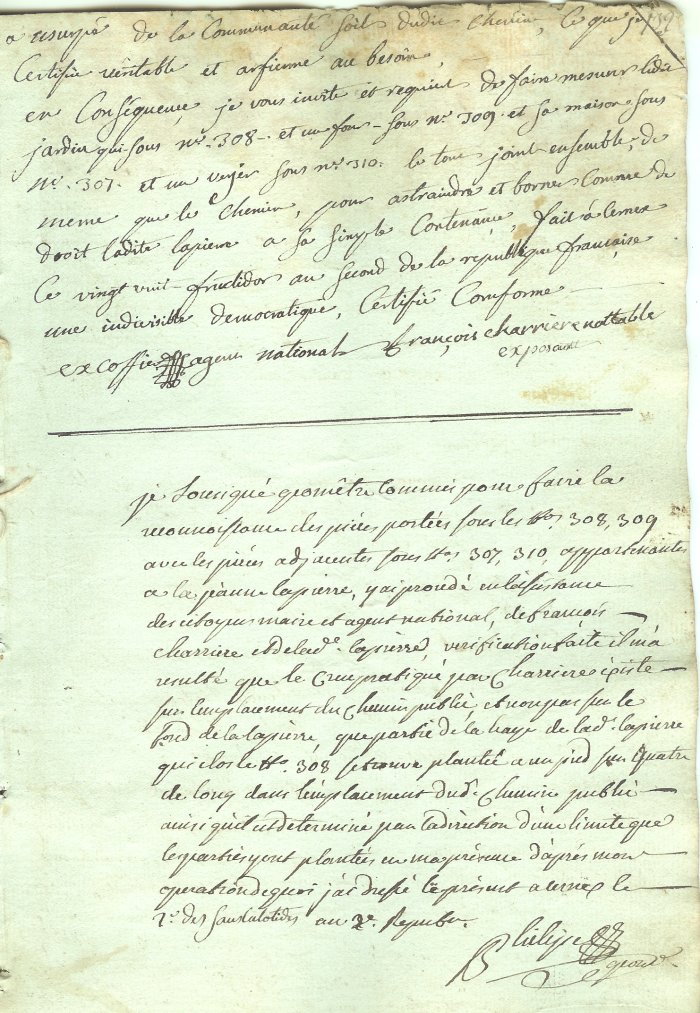 a usurpé de la Communauté soit dudit Chemin, Ce que je
Certifie veritable et arfienne au besoin,
en Conséquence, je vous invite et requiert de faire mesurer ledit
jardin qui sous nro. 308. et un four sous nro. 309. et sa maison sous
nro. 307. et un verjer sous nro. 310. le tout joint ensemble, de
meme que le Chemin, pour astraindre et borner Comme de
droit ladite lapierre a sa simple Contenance, fait à Cernex
Ce vingt vuit fructidor an second de la republique française
une indivisible democratique, Certifié Comforme
ex coffier agent national françois charriere nottable
exposant
je sousigné geomêtre Commis pour faire la
reconnoissance des pièces portées sous les No. 308, 309
avec les pièces adjacentes sous No. 307, 310, appartenantes
a la jeanne lapierre, y ai procédé en l'assistance
des citoyens maire et agent national, de françois
charriere et de lade. lapierre, vérification faite il m'a
resulté que le Creu pratiqué par Charriere existe
sur l'emplacement du Chemin public et non pas sur le
fond de la lapierre, que partie de la haye de lade. lapierre
qui clos le No. 308 se trouve plantée a un pied sur quatre
de long dans l'emplacement dud. Chemin public
ainsi qu'il est determiné par la direction d'une limite que
les parties y ont plantées en ma présence d'après mon
operation de quoi j'ai dressé le présent a cernex le
2e. des Sansculotides an 2e. Republ.
geom.